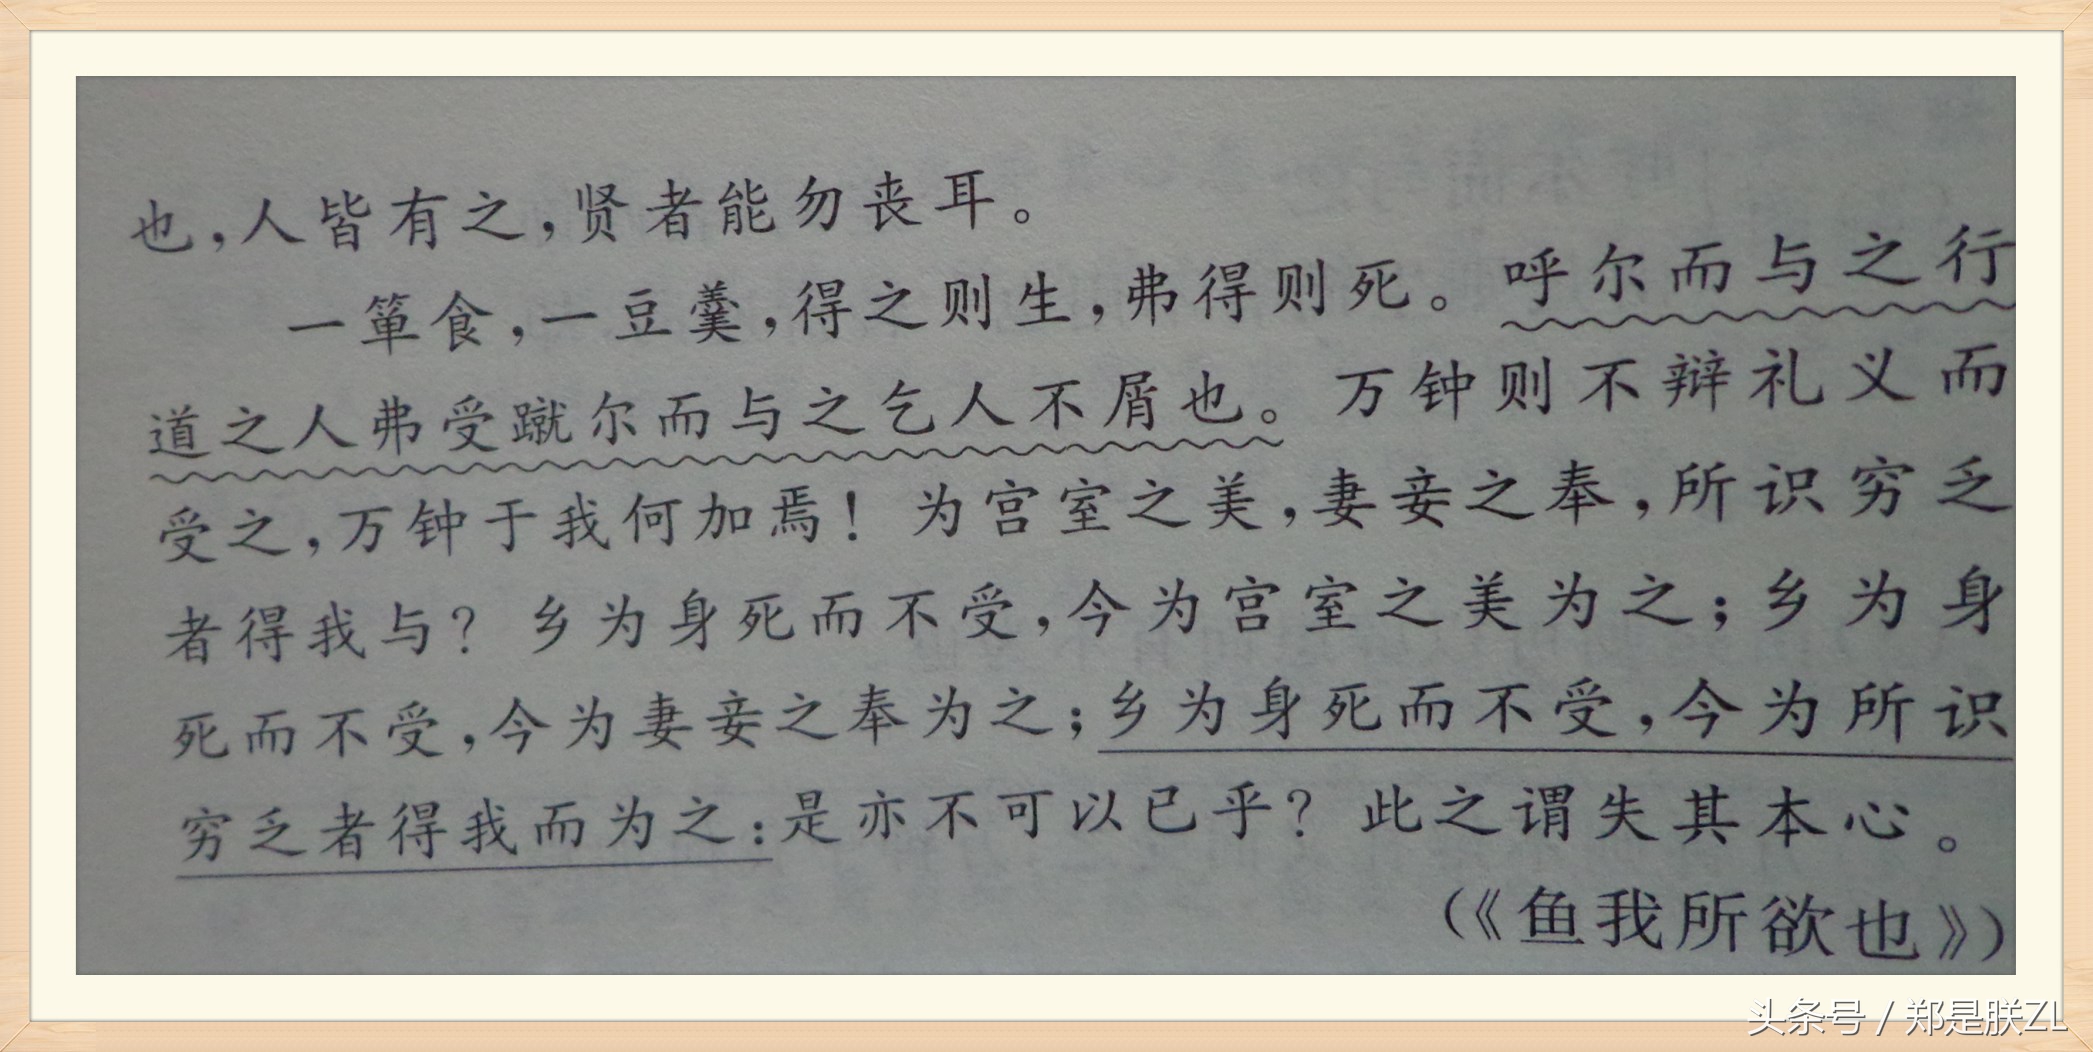 也，人皆有之，贤者能勿丧耳。
一箪食，一豆羹，得之则生，弗得则死。呼尔而与之行
道之人弗受蹴尔而与之乞人不屑也。万钟则不辩礼义而
受之，万钟于我何加焉！为宫室之美，妻妾之奉，所识穷乏
者得我与？乡为身死而不受，今为宫室之美为之；乡为身
死而不受，今为妻妾之奉为之；乡为身死而不受，今为所识
穷乏者得我而为之：是亦不可以已乎？此之谓失其本心。
（《鱼我所欲也》）
头条号 / 郑是朕ZL